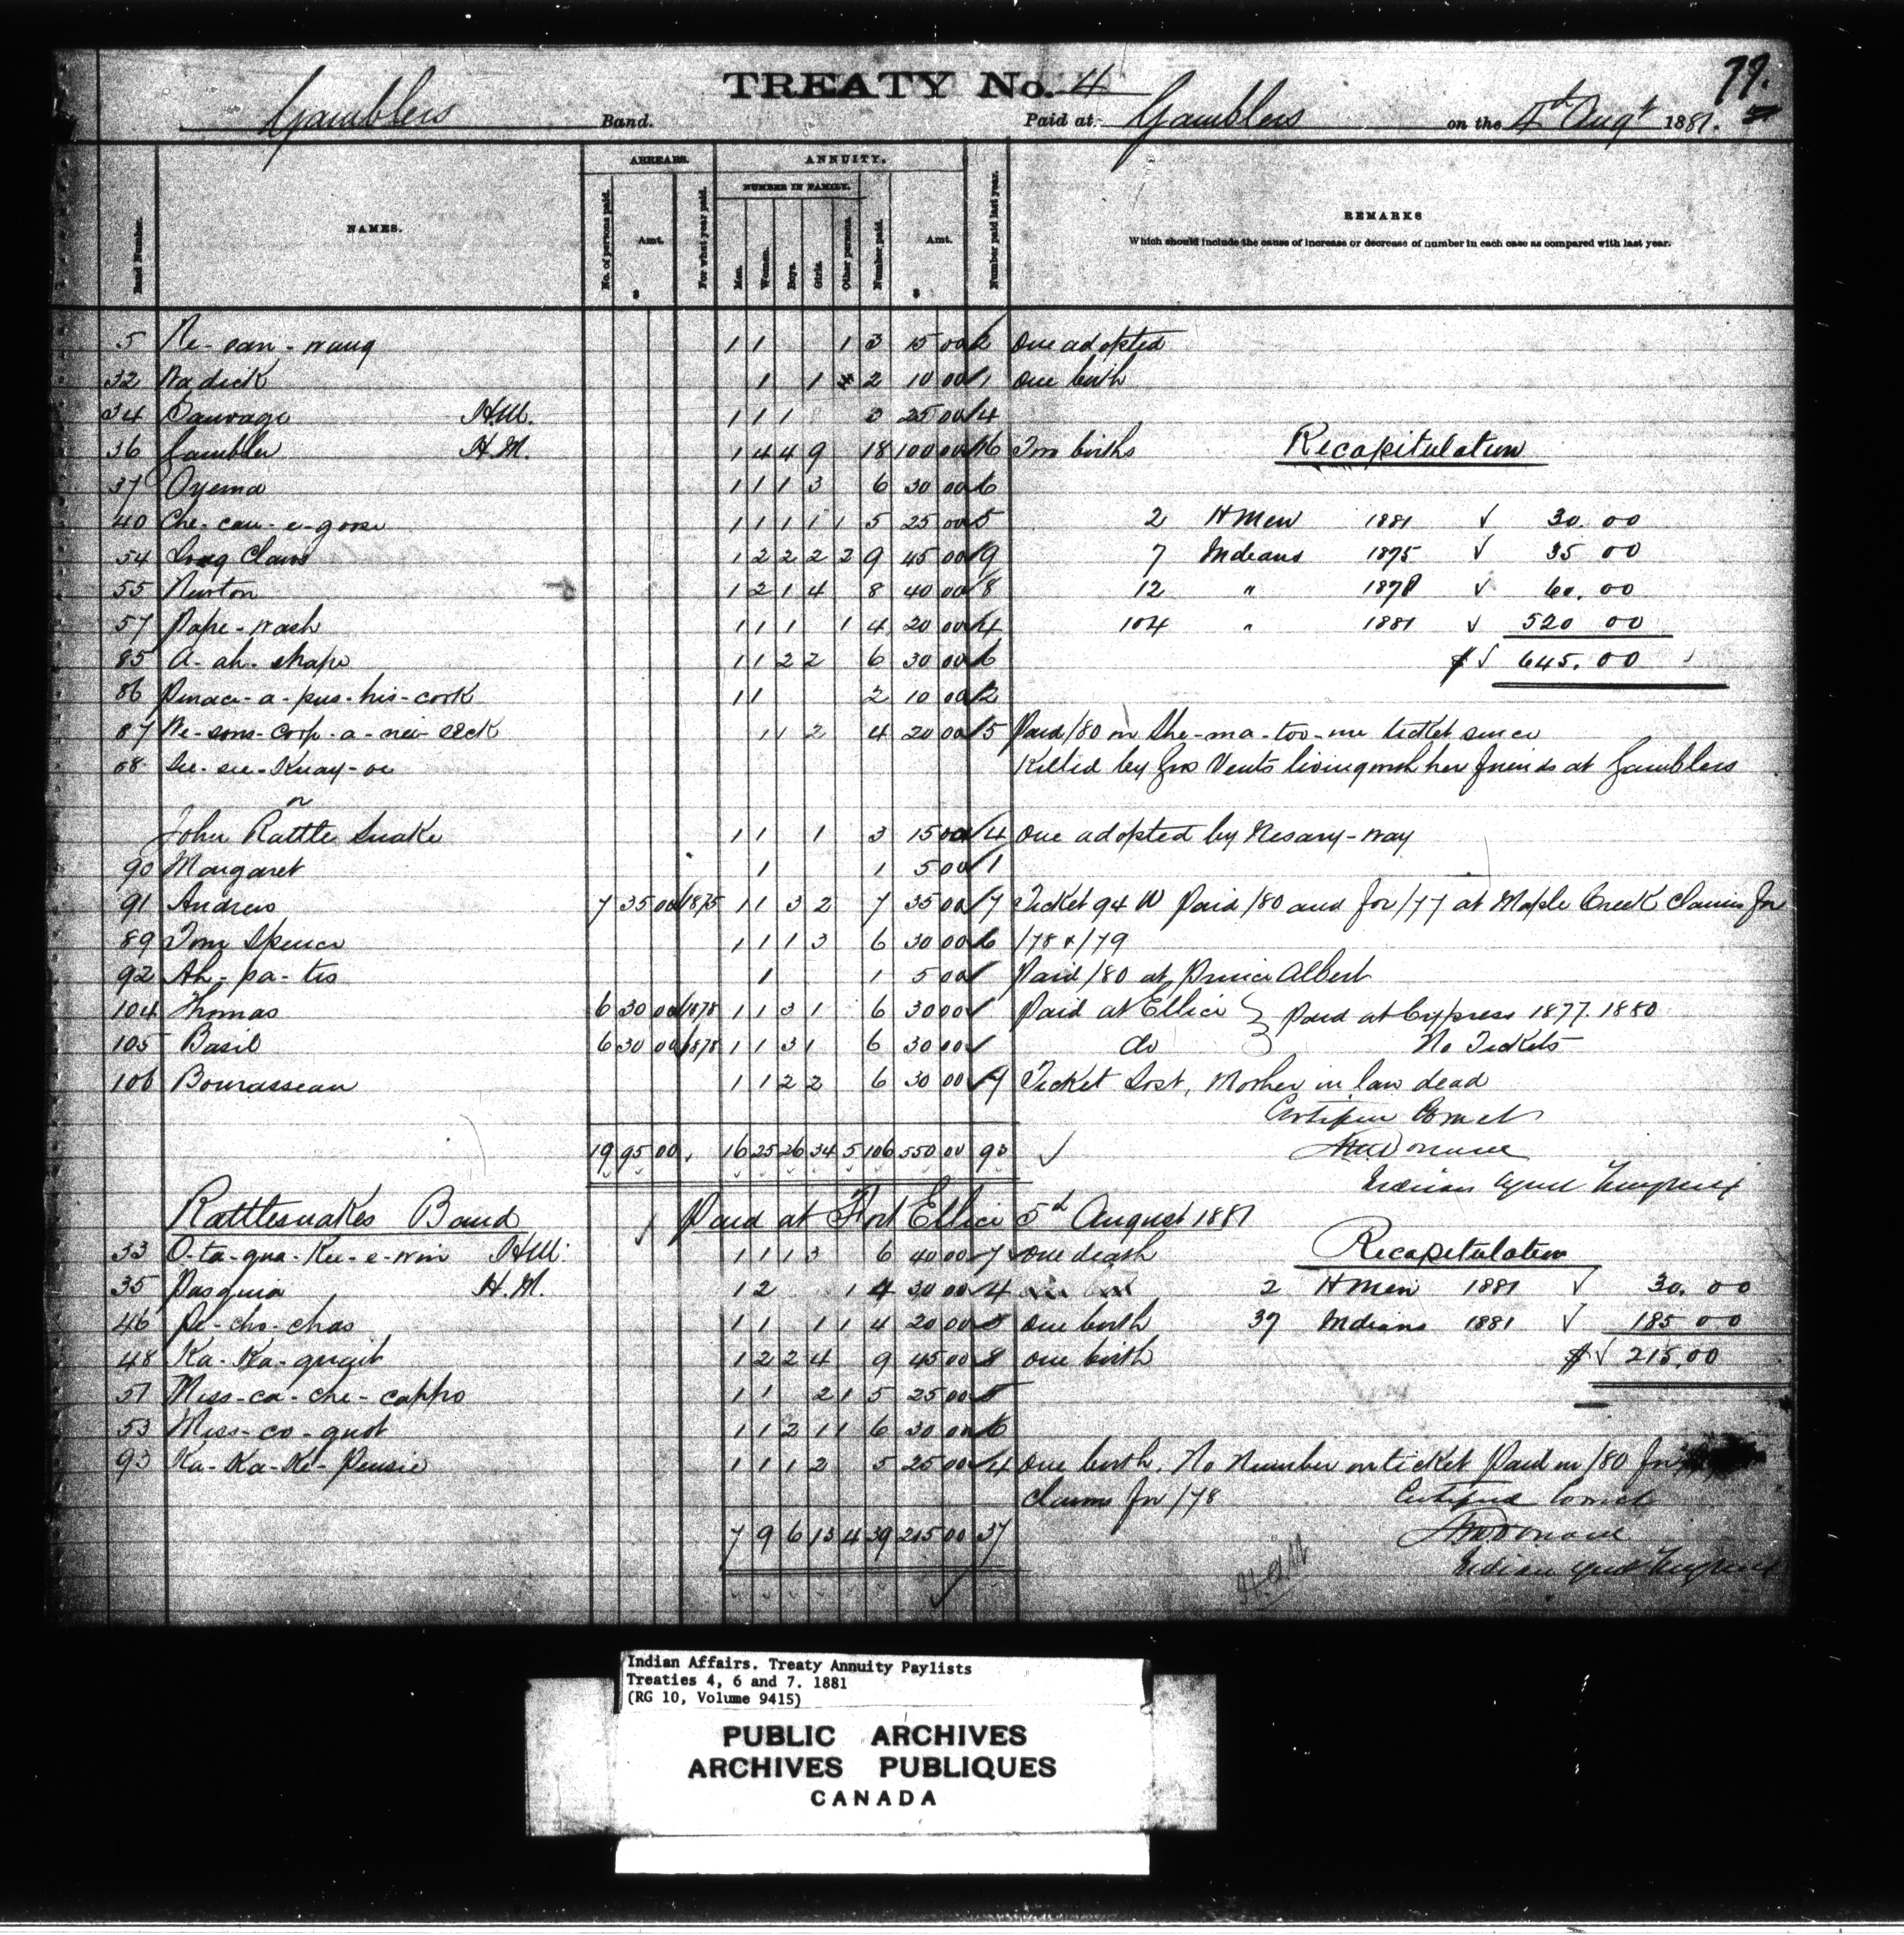 77.
TREATY No. 4
Gamblers Band. Paid at Gamblers on the 4th Augt 1881.
ARREARS. ANNUITY.
NUMBER IN FAMILY.
Band Number. NAMES. No. of persons paid. Amt. $ For what year paid. Men. Women. Boys. Girls. Other persons. Number paid. Amt. $ Number paid last year. REMARKS
Which should include the cause of increase or decrease of number in each case as compared with last year.
5 Ne-san-waug 1 1 1 3 15 00 2 One adopted
32 Nadick 1 1 2 10 00 1 One birth
34 Sauvage H.M. 1 1 1 3 25 00 4
36 Gambler H.M. 1 4 4 9 18 100 00 16 Two births Recapitulation
37 Oyema 1 1 1 3 6 30 00 6
40 Che-cau-e-goose 1 1 1 1 1 5 25 00 5 2 HMen 1881 30.00
54 Long Claws 1 2 2 2 2 9 45 00 9 7 Indians 1875 35 00
55 Newton 1 2 1 4 8 40 00 8 12 " 1878 60.00
57 Pape-wash 1 1 1 1 4 20 00 4 104 " 1881 520 00
85 A-ah-shape 1 1 2 2 6 30 00 6 $ 645.00
86 Penace-a-pus-his-cork 1 1 2 10 00 2
87 Ne-sons-coop-a-nei-seck 1 1 2 4 20 00 5 Paid /80 on She-ma-too-me ticket since
88 See-see-Kuay-oe Killed by Gros Vents living with her friends at Gamblers
or
John Rattle Snake 1 1 1 3 15 00 4 One adopted by Nesary-way
90 Margaret 1 1 5 00 1
91 Andrew 7 35 00 1875 1 1 3 2 7 35 00 7 Ticket 94 W Paid /80 and for /77 at Maple Creek claims for
89 Tom Spence 1 1 1 3 6 30 00 6 /78 & /79
92 Ah-pa-tis 1 1 5 00 Paid /80 at Prince Albert
104 Thomas 6 30 00 1878 1 1 3 1 6 30 00 Paid at Ellice } Paid at Cypress 1877. 1880
105 Basil 6 30 00 1878 1 1 3 1 6 30 00 do No Tickets
106 Bourasseau 1 1 2 2 6 30 00 7 Ticket Lost, Mother in law dead
Certified Correct
19 95 00 16 25 26 34 5 106 550 00 93
Indian Agent
Rattlesnakes Band Paid at Fort Ellice 5th August 1881
33 O-ta-qua-Kee-e-win H.M. 1 1 1 3 6 40 00 7 One death Recapitulation
35 Pasquia H.M. 1 2 1 4 30 00 4 2 HMen 1881 30.00
46 Pe-cho-chas 1 1 1 1 4 20 00 3 One birth 37 Indians 1881 185 00
48 Ka-Ka-quait 1 2 2 4 9 45 00 8 One birth $ 215.00
51 Miss-ca-che-cappo 1 1 2 1 5 25 00 5
53 Miss-co-quot 1 1 2 1 1 6 30 00 6
93 Ka-Ka-Ke-Pensie 1 1 1 2 5 25 00 4 One birth. No Number on ticket Paid in /80 for
claims for /78 Certified Correct
7 9 6 13 4 39 215 00 37
Indian Agent
Indian Affairs. Treaty Annuity Paylists
Treaties 4, 6 and 7. 1881
(RG 10, Volume 9415)
PUBLIC ARCHIVES
ARCHIVES PUBLIQUES
CANADA